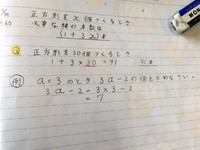 正方形をx個つくるとき
必要な棒の本数は
(1+3x)本
Q 正方形を30個つくるとき
1+3×30=91 91本
例 a=3のとき、3a-2の値をもとめなさい。
3a-2=3×3-2
=7